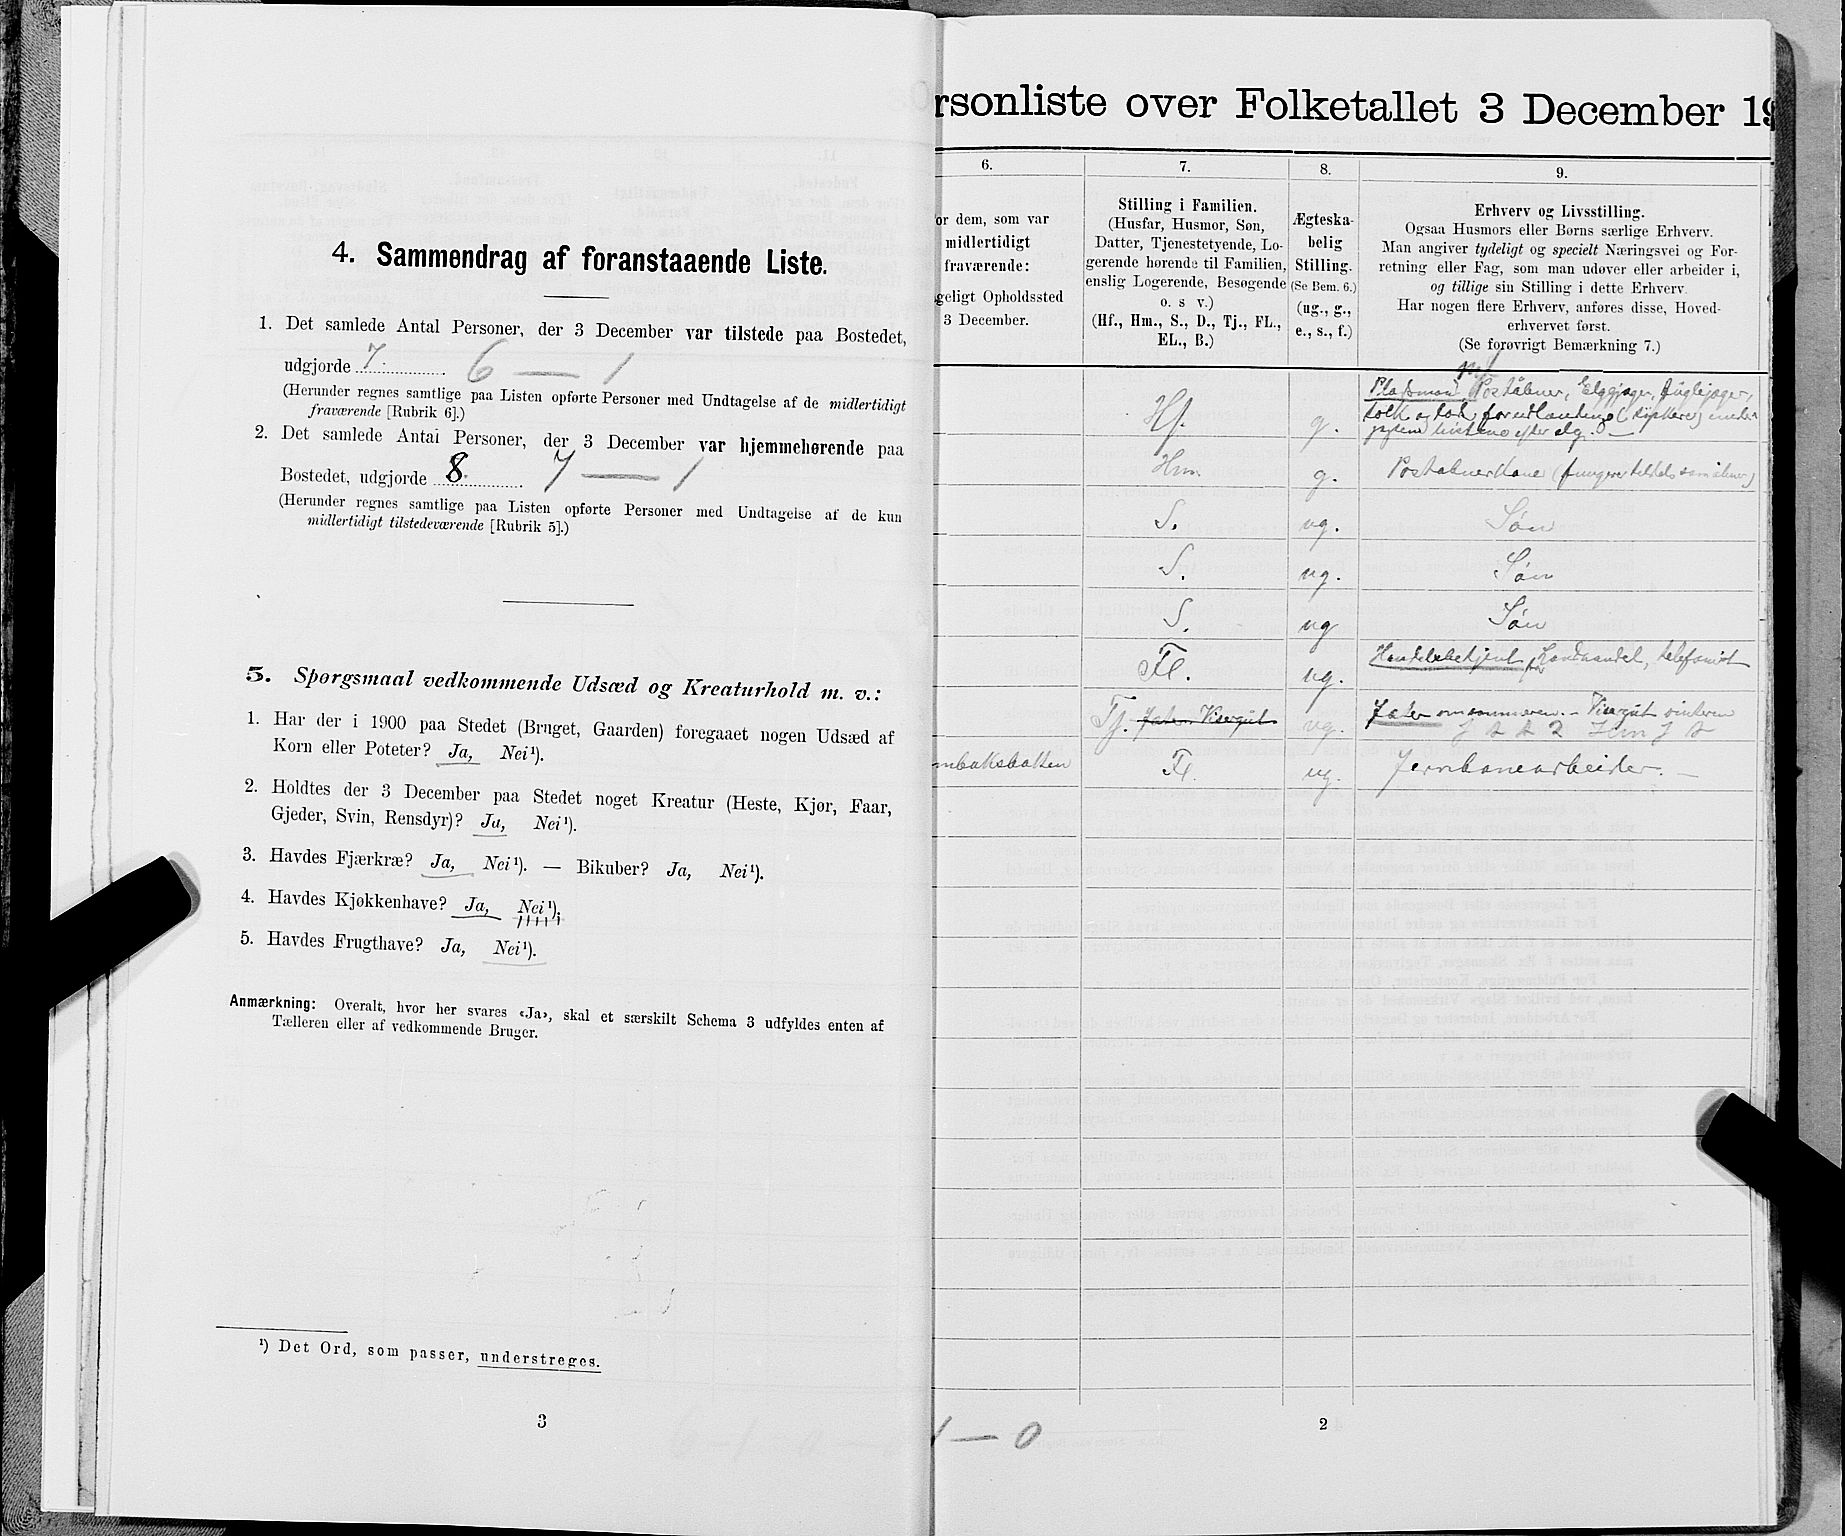 4. Sammendrag af foranstaaende Liste.
1. Det samlede Antal Personer, der 3 December var tilstede paa Bostedet,
udgjorde 7. 6 — 1
(Herunder regnes samtlige paa Listen opførte Personer med Undtagelse af de midlertidigt
fraværende [Rubrik 6].)
2. Det samlede Antal Personer, der 3 December var hjemmehørende paa
Bostedet, udgjorde 8. 7 — 1
(Herunder regnes samtlige paa Listen opførte Personer med Undtagelse af de kun
midlertidigt tilstedeværende [Rubrik 5].)
5. Spørgsmaal vedkommende Udsæd og Kreaturhold m. v.:
1. Har der i 1900 paa Stedet (Bruget, Gaarden) foregaaet nogen Udsæd af
Korn eller Poteter? Ja, Nei¹).
2. Holdtes der 3 December paa Stedet noget Kreatur (Heste, Kjør, Faar,
Gjeder, Svin, Rensdyr)? Ja, Nei¹).
3. Havdes Fjærkræ? Ja, Nei¹). — Bikuber? Ja, Nei¹).
4. Havdes Kjøkkenhave? Ja, Nei¹).
5. Havdes Frugthave? Ja, Nei¹).
Anmærkning: Overalt, hvor her svares «Ja», skal et særskilt Schema 3 udfyldes enten af
Tælleren eller af vedkommende Bruger.
¹) Det Ord, som passer, understreges.
3
rsonliste over Folketallet 3 December 19
6.
or dem, som var
midlertidigt
fraværende:
geligt Opholdssted
3 December.
7.
Stilling i Familien.
(Husfar, Husmor, Søn,
Datter, Tjenestetyende, Lo-
gerende hørende til Familien,
enslig Logerende, Besøgende
o. s v.)
(Hf., Hm., S., D., Tj., FL.,
EL., B.)
8.
Ægteska-
belig
Stilling.
(Se Bem. 6.)
(ug., g.,
e., s., f.)
9.
Erhverv og Livsstilling.
Ogsaa Husmors eller Børns særlige Erhverv.
Man angiver tydeligt og specielt Næringsvei og For-
retning eller Fag, som man udøver eller arbeider i,
og tillige sin Stilling i dette Erhverv.
Har nogen flere Erhverv, anføres disse, Hoved-
erhvervet først.
(Se forøvrigt Bemærkning 7.)
Hf. g. Pladsmand, Poståbner, Elgjæger, fuglejæger,
tolk og for udlændinge (tyskere) under
jagten efter elg.
Hm. g. Postabnerkone
S. ug. Søn
S. ug. Søn
S. ug Søn
Fl. ug. Handelsbetjent, Landhandel, telefonist
Tj. Jæter. Visergut ug. Jæter om sommeren. – Visergut vinteren
mbaksbotten Fl. ug. Jernbanearbeider. —
1 — 0
2